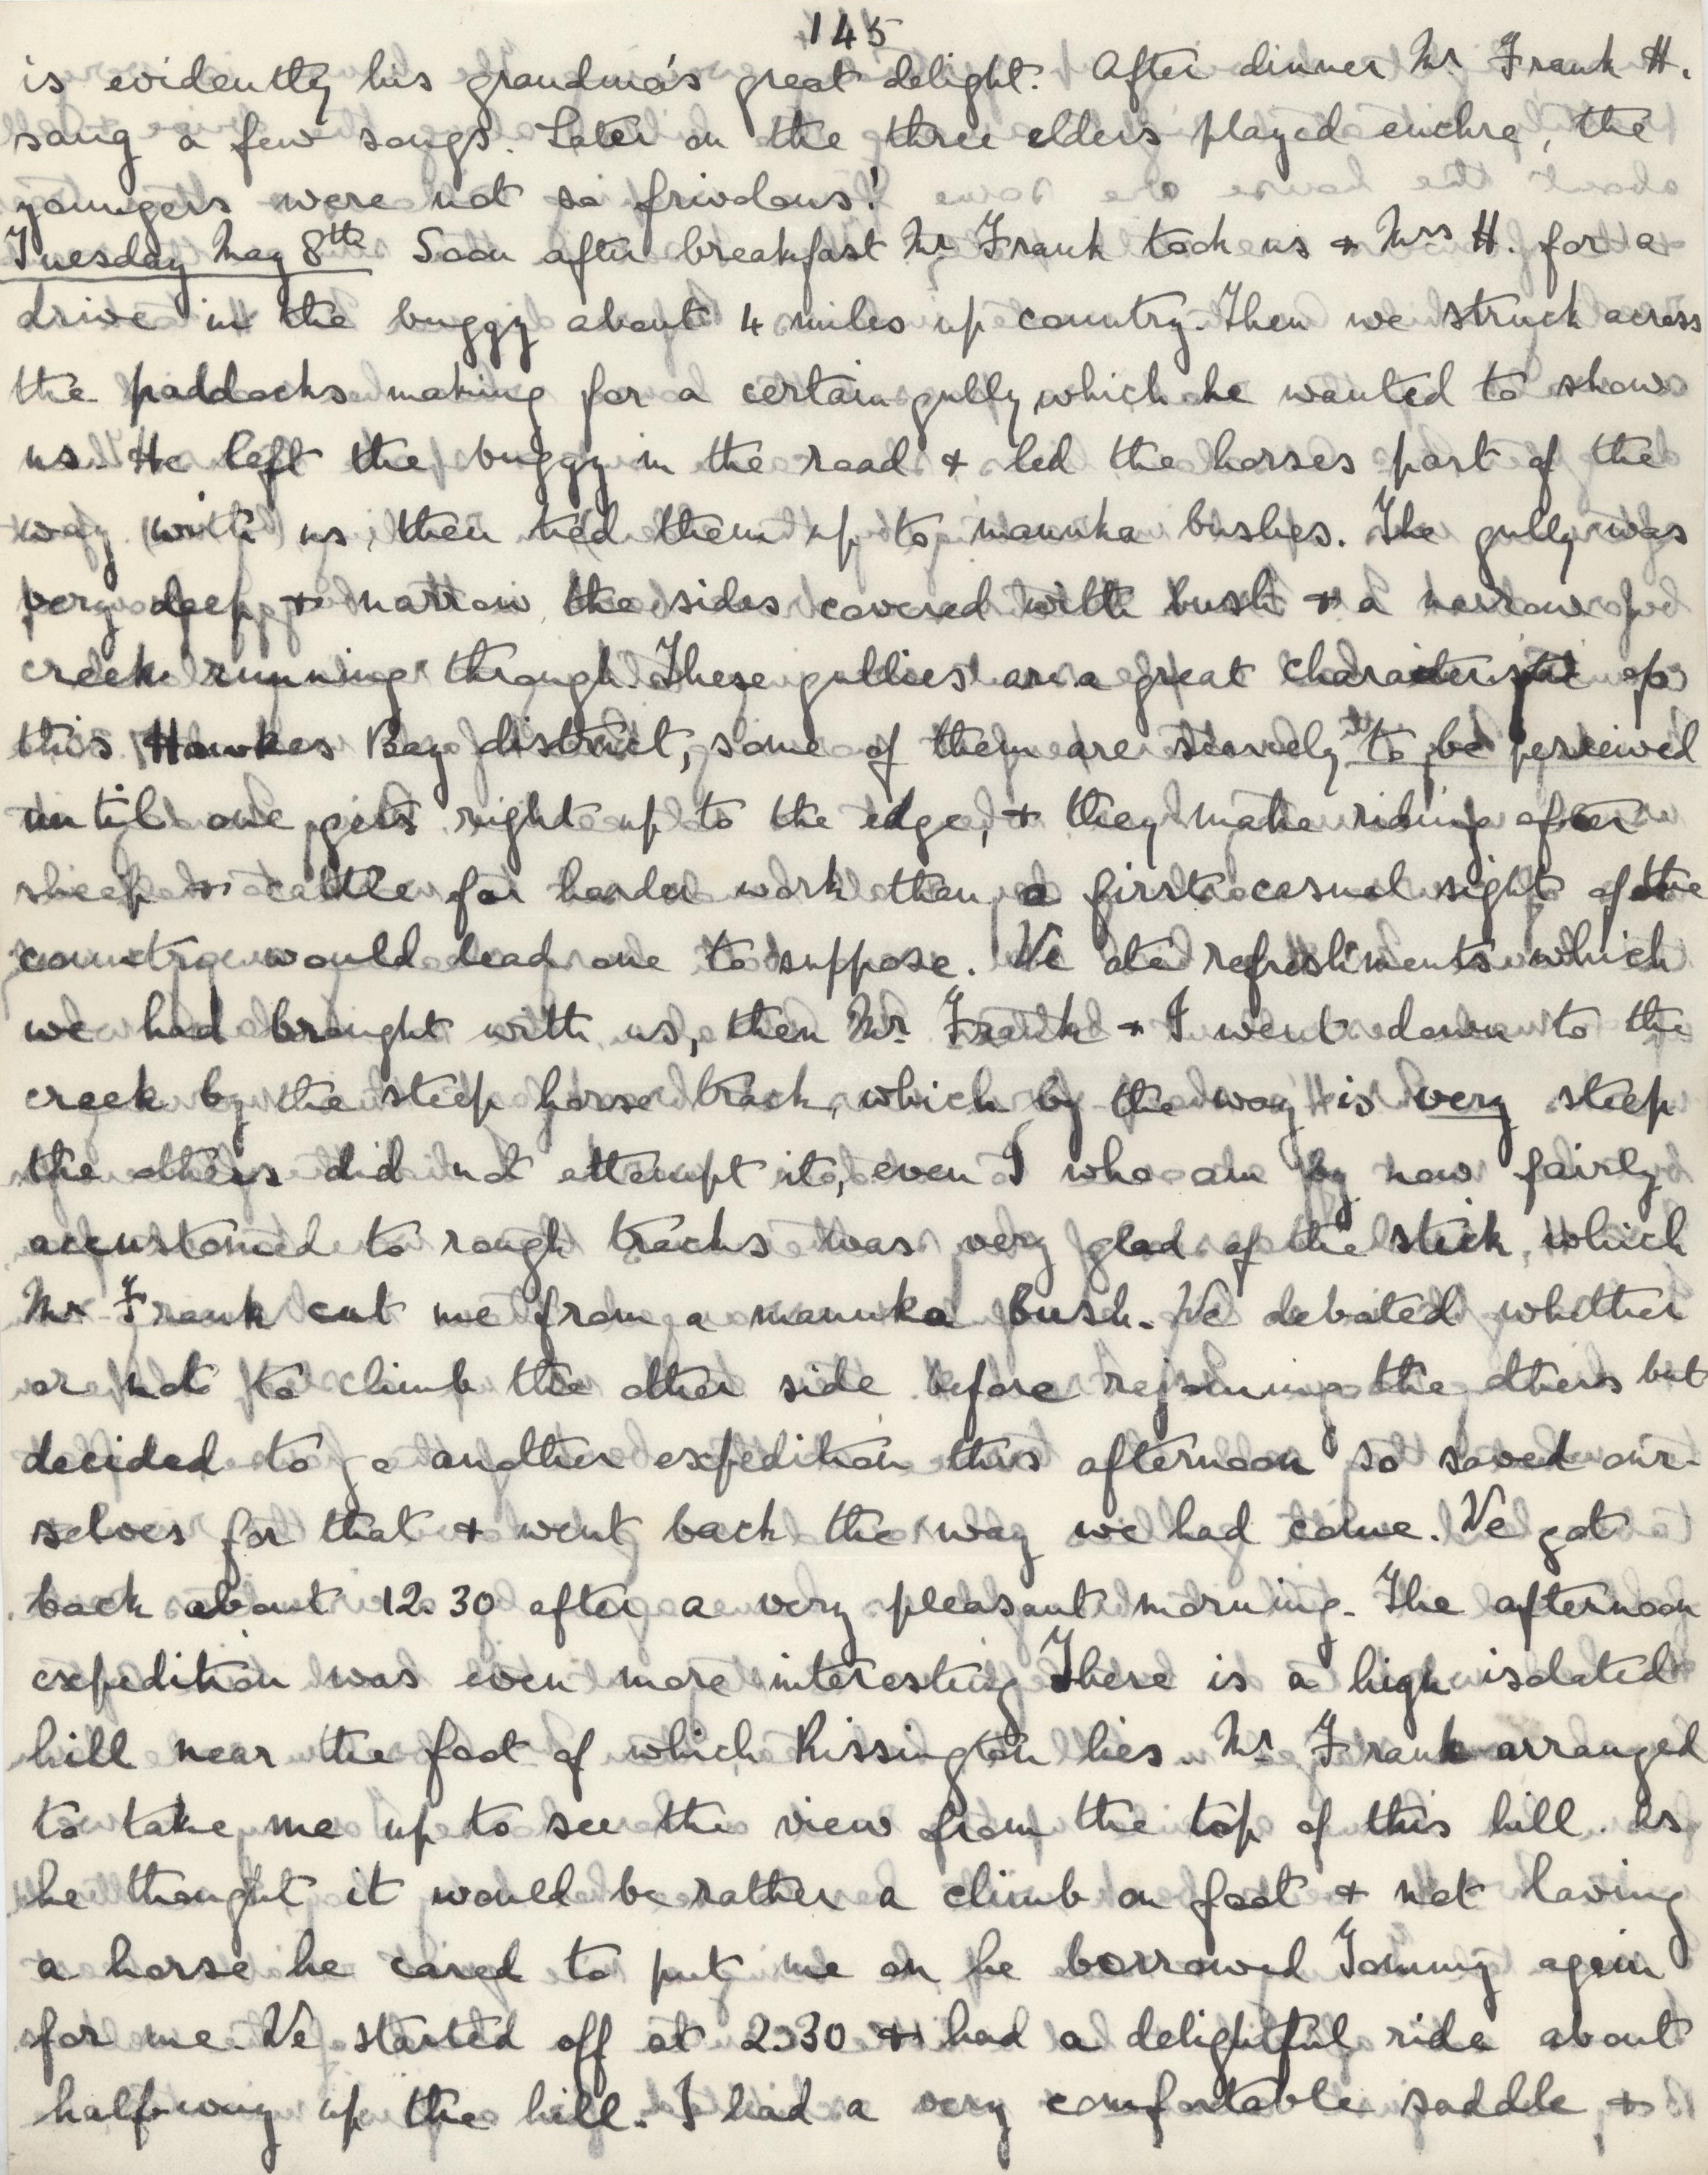 145
is evidently his grandma's great delight. After dinner Mr Frank H.
sang a few songs. Later on the three elders played euchre, the
youngers were not so frivolous!
Tuesday May 8th Soon after breakfast Mr Frank took us + Mrs H. for a
drive in the buggy about 4 miles up country. Then we struck across
the paddocks making for a certain gully which he wanted to show
us. He left the buggy in the road + led the horses part of the
way with us, then tied them up to manuka bushes. The gully was
very deep + narrow, the sides covered with bush + a narrow
creek running through. These gullies are a great characteristic of
this Hawkes Bay district, some of them are scarcely to be perceived
until one gets right up to the edge, + they make riding after
sheep + cattle far harder work than a first casual sight of the
country would lead one to suppose. We ate refreshments which
we had brought with us, then Mr Frank + I went down to the
creek by the steep horse track, which by the way is very steep
the others did not attempt it, even I who am by now fairly
accustomed to rough tracks was very glad of the stick, which
Mr Frank cut me from a manuka bush. We debated whether
or not to climb the other side before rejoining the others but
decided to go another expedition this afternoon so saved our-
selves for that + went back the way we had come. We got
back about 12.30 after a very pleasant morning. The afternoon
expedition was even more interesting There is a high isolated
hill near the foot of which Rissington lies. Mr Frank arranged
to take me up to see the view from the top of this hill. As
he thought it would be rather a climb on foot + not having
a horse he cared to put me on he borrowed Tommy again
for me. We started off at 2.30 + had a delightful ride about
half-way up the hill. I had a very comfortable saddle +